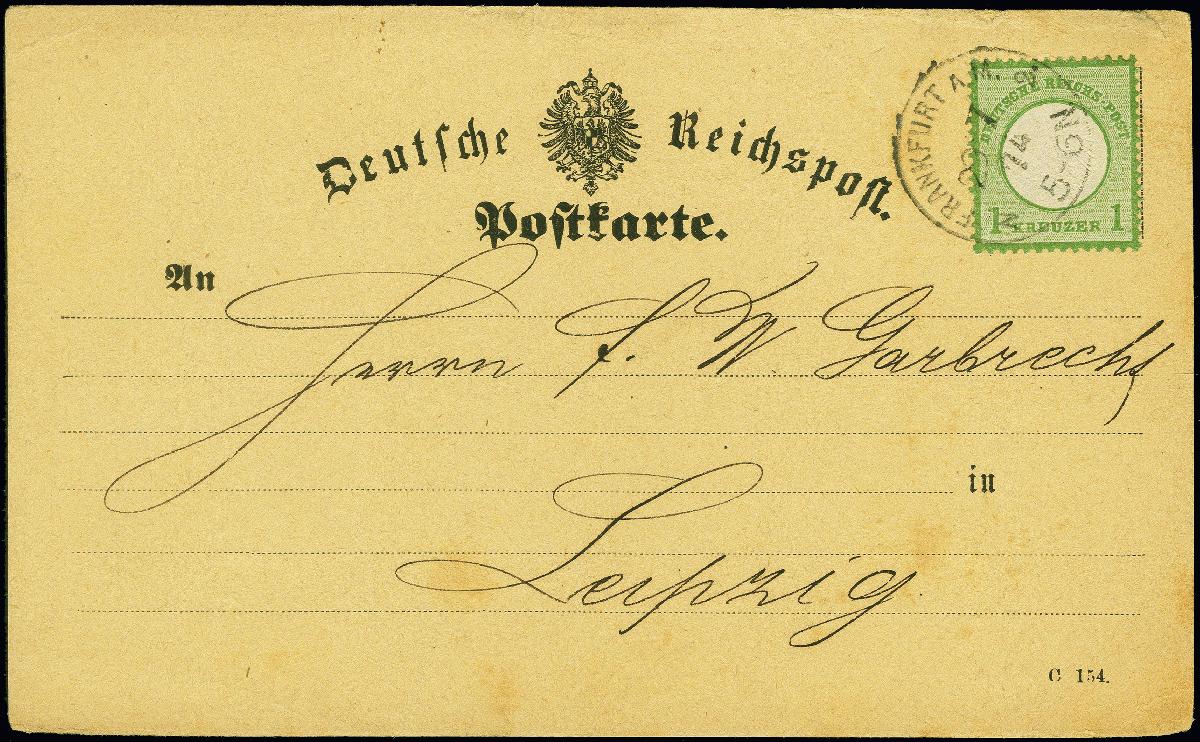 Deutsche Reichspost.
Postkarte.
FRANKFURT A. M.
74
5-6N
DEUTSCHE REICHS-POST
1 KREUZER 1
An
Herrn F. W Garbrecht
in
Leipzig
C 154.